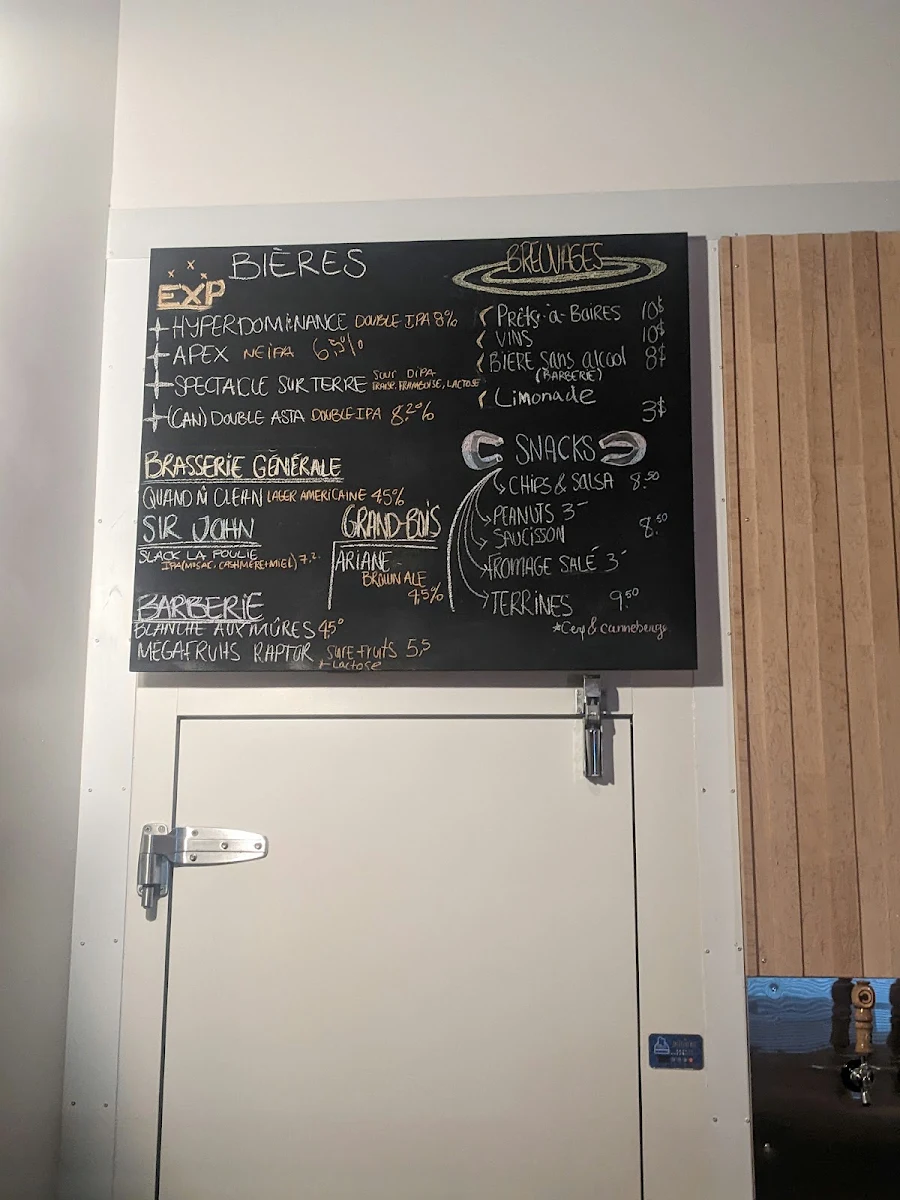 BIÈRES
EXP
HYPERDOMINANCE DOUBLE IPA 8%
APEX NEIPA 6,5%
SPECTACLE SUR TERRE SOUR DIPA
FRAISE, FRAMBOISE, LACTOSE
(CAN) DOUBLE ASTA DOUBLE IPA 8.2%
BRASSERIE GÉNÉRALE
QUAND M CLEAN LAGER AMERICAINE 4.5%
SIR JOHN
SLACK LA POULIE
IPA (MOSAIC, CASHMERE+MIEL) 7.2
GRAND-BOIS
ARIANE
BROWN ALE
4,5%
BARBERIE
BLANCHE AUX MÛRES 4.5°
MÉGAFRUITS RAPTOR sure fruits 5,5
+ Lactose
BREUVAGES
Prêts-à-BOIRES 10$
VINS 10$
BIÈRE Sans alcool 8$
(BARBERIE)
Limonade 3$
SNACKS
CHIPS & SALSA 8.50
PEANUTS 3-
SAUCISSON 8.50
FROMAGE SALÉ 3-
TERRINES 9.50
*Cerf & canneberge